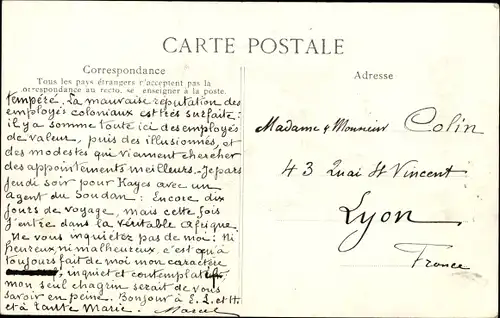 CARTE POSTALE
Correspondance
Tous les pays étrangers n'acceptent pas la
correspondance au recto. se enseigner à la poste.
Adresse
tempéré. La mauvaise réputation des
employés coloniaux est très surfaite:
il y a somme toute ici des employés
de valeur, puis des illusionnés, et
des modestes qui viennent chercher
des appointements meilleurs. - Je pars
jeudi soir pour Kayes avec un
agent du Soudan: Encore dix
jours de voyage, mais cette fois
j'entre dans la véritable Afrique.
Ne vous inquiétez pas de moi: Ni
heureux, ni malheureux, c'est qu'à
toujours fait de moi mon caractère
inquiet et contemplatif,
mon seul chagrin serait de vous
savoir en peine. Bonjour à E. L. et H
et à Tante Marie. Marcel
Madame & Monsieur Colin
43 Quai St Vincent
Lyon
France